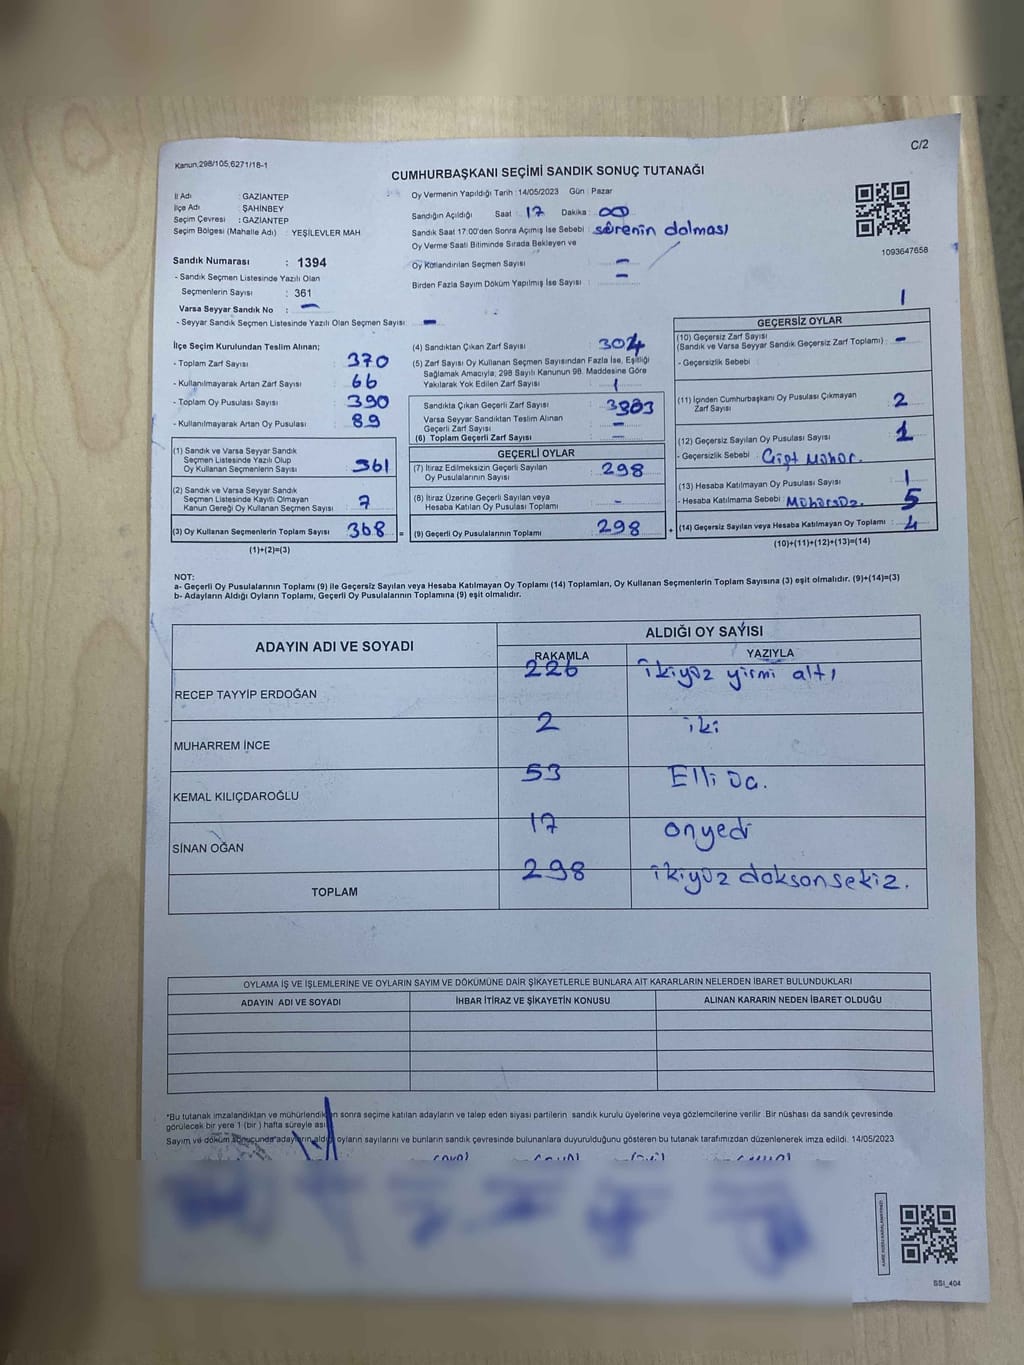 C/2
Kanun,298/105,6271/18-1
CUMHURBAŞKANI SEÇİMİ SANDIK SONUÇ TUTANAĞI
İl Adı : GAZİANTEP
İlçe Adı : ŞAHİNBEY
Seçim Çevresi : GAZİANTEP
Seçim Bölgesi (Mahalle Adı) : YEŞİLEVLER MAH
Sandık Numarası : 1394
- Sandık Seçmen Listesinde Yazılı Olan
Seçmenlerin Sayısı : 361
Varsa Seyyar Sandık No : –
- Seyyar Sandık Seçmen Listesinde Yazılı Olan Seçmen Sayısı : –
Oy Vermenin Yapıldığı Tarih : 14/05/2023 Gün : Pazar
Sandığın Açıldığı Saat : 17 Dakika : 00
Sandık Saat 17.00'den Sonra Açımış İse Sebebi : sürenin dolması
Oy Verme Saati Bitiminde Sırada Bekleyen ve
Oy Kullandırılan Seçmen Sayısı : –
Birden Fazla Sayım Döküm Yapılmış İse Sayısı : –
1093647658
İlçe Seçim Kurulundan Teslim Alınan;
- Toplam Zarf Sayısı : 370
- Kullanılmayarak Artan Zarf Sayısı : 66
- Toplam Oy Pusulası Sayısı : 390
- Kullanılmayarak Artan Oy Pusulası : 89
(1) Sandık ve Varsa Seyyar Sandık
Seçmen Listesinde Yazılı Olup
Oy Kullanan Seçmenlerin Sayısı : 361
(2) Sandık ve Varsa Seyyar Sandık
Seçmen Listesinde Kayıtlı Olmayan
Kanun Gereği Oy Kullanan Seçmen Sayısı : 7
(3) Oy Kullanan Seçmenlerin Toplam Sayısı : 368
(1)+(2)=(3)
(4) Sandıktan Çıkan Zarf Sayısı : 304
(5) Zarf Sayısı Oy Kullanan Seçmen Sayısından Fazla İse, Eşitliği
Sağlamak Amacıyla, 298 Sayılı Kanunun 98. Maddesine Göre
Yakılarak Yok Edilen Zarf Sayısı : 1
Sandıkta Çıkan Geçerli Zarf Sayısı :
Varsa Seyyar Sandıktan Teslim Alınan
Geçerli Zarf Sayısı : –
(6) Toplam Geçerli Zarf Sayısı : –
GEÇERLİ OYLAR
(7) İtiraz Edilmeksizin Geçerli Sayılan
Oy Pusulalarının Sayısı : 298
(8) İtiraz Üzerine Geçerli Sayılan veya
Hesaba Katılan Oy Pusulası Toplamı : -
= (9) Geçerli Oy Pusulalarının Toplamı : 298
1
GEÇERSİZ OYLAR
(10) Geçersiz Zarf Sayısı
(Sandık ve Varsa Seyyar Sandık Geçersiz Zarf Toplamı) : –
- Geçersizlik Sebebi :
(11) İçinden Cumhurbaşkanı Oy Pusulası Çıkmayan
Zarf Sayısı : 2
(12) Geçersiz Sayılan Oy Pusulası Sayısı : 1
- Geçersizlik Sebebi : Çift Mühür.
(13) Hesaba Katılmayan Oy Pusulası Sayısı : 1
- Hesaba Katılmama Sebebi : Mühürsüz. 5
+ (14) Geçersiz Sayılan veya Hesaba Katılmayan Oy Toplamı : 4
(10)+(11)+(12)+(13)=(14)
NOT:
a- Geçerli Oy Pusulalarının Toplamı (9) ile Geçersiz Sayılan veya Hesaba Katılmayan Oy Toplamı (14) Toplamları, Oy Kullanan Seçmenlerin Toplam Sayısına (3) eşit olmalıdır. (9)+(14)=(3)
b- Adayların Aldığı Oyların Toplamı, Geçerli Oy Pusulalarının Toplamına (9) eşit olmalıdır.
ADAYIN ADI VE SOYADI
ALDIĞI OY SAYISI
RAKAMLA YAZIYLA
RECEP TAYYİP ERDOĞAN 226 ikiyüz yirmi altı
MUHARREM İNCE 2 iki
KEMAL KILIÇDAROĞLU 53 Elli üç.
SİNAN OĞAN 17 onyedi
TOPLAM 298 ikiyüz doksonsekiz.
OYLAMA İŞ VE İŞLEMLERİNE VE OYLARIN SAYIM VE DÖKÜMÜNE DAİR ŞİKAYETLERLE BUNLARA AİT KARARLARIN NELERDEN İBARET BULUNDUKLARI
ADAYIN ADI VE SOYADI İHBAR İTİRAZ VE ŞİKAYETİN KONUSU ALINAN KARARIN NEDEN İBARET OLDUĞU
*Bu tutanak imzalandıktan ve mühürlendikten sonra seçime katılan adayların ve talep eden siyasi partilerin sandık kurulu üyelerine veya gözlemcilerine verilir. Bir nüshası da sandık çevresinde
görülecek bir yere 1 (bir ) hafta süreyle
Sayım ve döküm sonucunda adayların aldığı oyların sayılarını ve bunların sandık çevresinde bulunanlara duyurulduğunu gösteren bu tutanak tarafımızdan düzenlenerek imza edildi. 14/05/2023
SSI_404